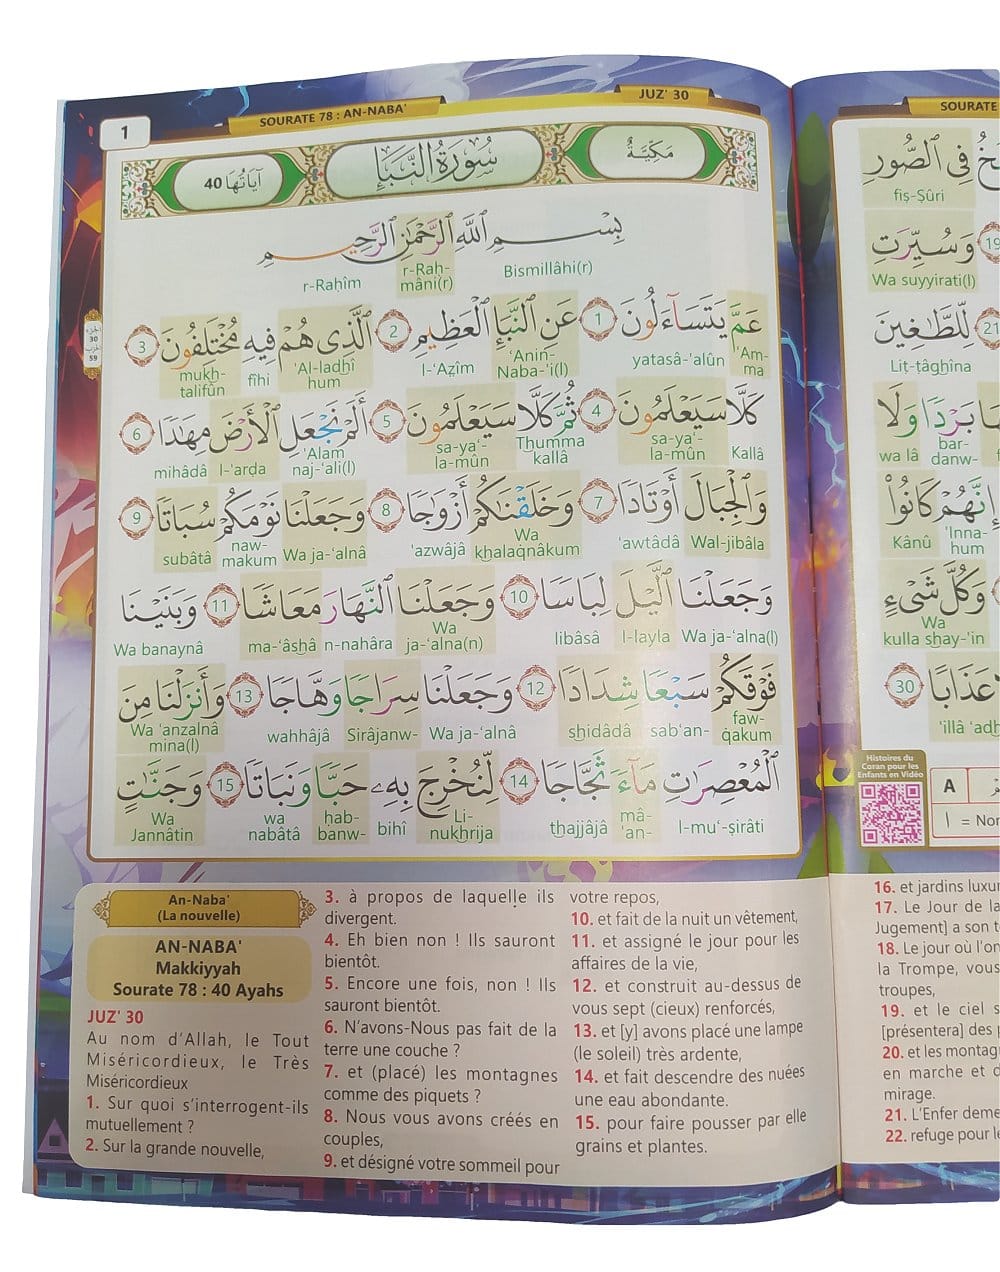 SOURATE 78 : AN-NABA'
JUZ' 30
1
مَكِيَّةٌ
سُورَةُ النَّبَإِ
آيَاتُهَا 40
بِسْمِ ٱللَّهِ ٱلرَّحْمَٰنِ ٱلرَّحِيمِ
Bismillâhi(r) r-Raḥ-mâni(r) r-Raḥîm
عَمَّ يَتَسَآءَلُونَ 1 عَنِ ٱلنَّبَإِ ٱلْعَظِيمِ 2 ٱلَّذِى هُمْ فِيهِ مُخْتَلِفُونَ 3
'Am-ma yatasâ-'alûn 'Anin-Naba-'i(l) l-'Aẓîm 'Al-ladhî hum fîhi mukh-talifûn
كَلَّا سَيَعْلَمُونَ 4 ثُمَّ كَلَّا سَيَعْلَمُونَ 5 أَلَمْ نَجْعَلِ ٱلْأَرْضَ مِهَٰدًا 6
Kallâ sa-ya'-la-mûn Thumma kallâ sa-ya'-la-mûn 'Alam naj-'ali(l) l-'arḍa mihâdâ
وَٱلْجِبَالَ أَوْتَادًا 7 وَخَلَقْنَٰكُمْ أَزْوَٰجًا 8 وَجَعَلْنَا نَوْمَكُمْ سُبَاتًا 9
Wal-jibâla 'awtâdâ Wa khalaqnâkum 'azwâjâ Wa ja-'alnâ naw-makum subâtâ
وَجَعَلْنَا ٱلَّيْلَ لِبَاسًا 10 وَجَعَلْنَا ٱلنَّهَارَ مَعَاشًا 11 وَبَنَيْنَا
Wa ja-'alna(l) l-layla libâsâ Wa ja-'alna(n) n-nahâra ma-'âshâ Wa banaynâ
فَوْقَكُمْ سَبْعًا شِدَادًا 12 وَجَعَلْنَا سِرَاجًا وَهَّاجًا 13 وَأَنزَلْنَا مِنَ
faw-qakum sab'an- shidâdâ Wa ja-'alnâ Sirâjanw- wahhâjâ Wa 'anzalnâ mina(l)
ٱلْمُعْصِرَٰتِ مَآءً ثَجَّاجًا 14 لِّنُخْرِجَ بِهِۦ حَبًّا وَنَبَاتًا 15 وَجَنَّٰتٍ
l-mu'-ṣirâti mâ-'an- thajjâjâ Li-nukhrija bihî ḥab-banw- wa nabâtâ Wa Jannâtin
30
59
An-Naba'
(La nouvelle)
AN-NABA'
Makkiyyah
Sourate 78 : 40 Ayahs
JUZ' 30
Au nom d'Allah, le Tout
Miséricordieux, le Très
Miséricordieux
1. Sur quoi s'interrogent-ils
mutuellement ?
2. Sur la grande nouvelle,
3. à propos de laquelle ils
divergent.
4. Eh bien non ! Ils sauront
bientôt.
5. Encore une fois, non ! Ils
sauront bientôt.
6. N'avons-Nous pas fait de la
terre une couche ?
7. et (placé) les montagnes
comme des piquets ?
8. Nous vous avons créés en
couples,
9. et désigné votre sommeil pour
votre repos,
10. et fait de la nuit un vêtement,
11. et assigné le jour pour les
affaires de la vie,
12. et construit au-dessus de
vous sept (cieux) renforcés,
13. et [y] avons placé une lampe
(le soleil) très ardente,
14. et fait descendre des nuées
une eau abondante.
15. pour faire pousser par elle
grains et plantes.
SOURATE
فِى ٱلصُّورِ
fiṣ-Ṣûri
19 وَسُيِّرَتِ
Wa suyyirati(l)
21 لِّلطَّٰغِينَ
Liṭ-ṭâghîna
بَرْدًا وَلَا
bar-danw- wa lâ
إِنَّهُمْ كَانُوا۟
'Inna-hum Kânû
وَكُلَّ شَىْءٍ
Wa kulla shay-'in
عَذَابًا 30
'illâ 'adh
Histoires du
Coran pour les
Enfants en Vidéo
A
ا = Non
16. et jardins luxu
17. Le Jour de la
Jugement] a son t
18. Le jour où l'on
la Trompe, vous
troupes,
19. et le ciel s
[présentera] des p
20. et les montag
en marche et d
mirage.
21. L'Enfer deme
22. refuge pour le